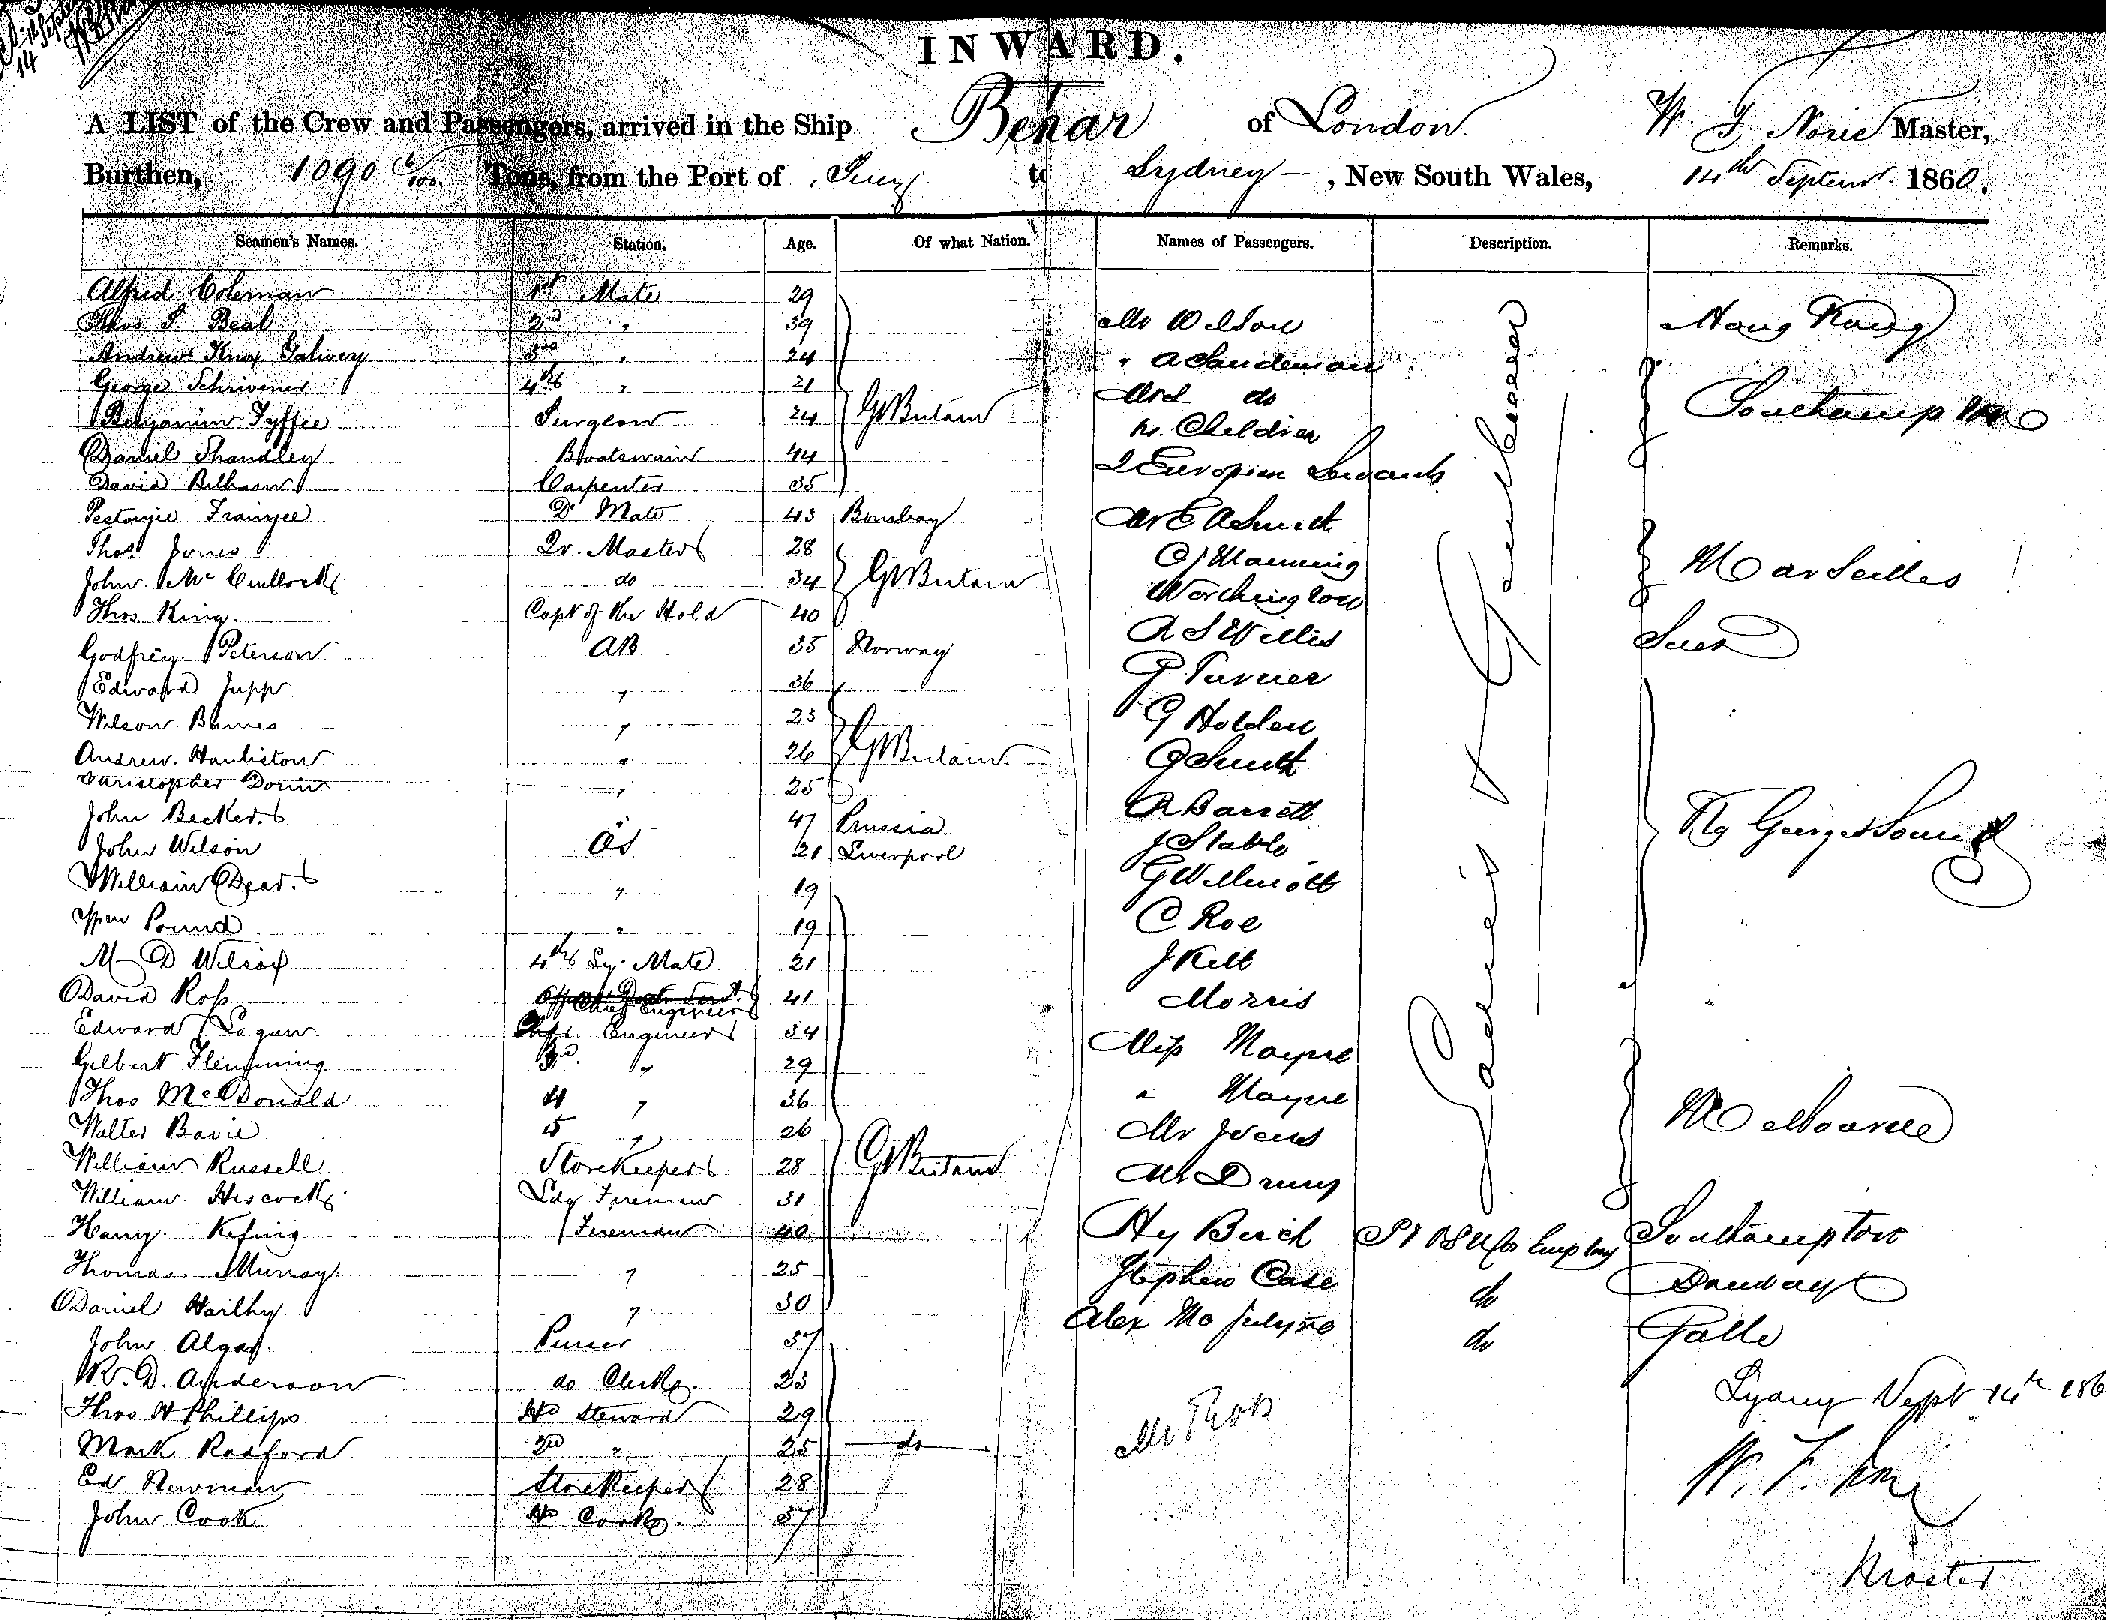 INWARD.
A LIST of the Crew and Passengers, arrived in the Ship Behar of London W F Norie Master,
Burthen, 1090 Tons, from the Port of Suez to Sydney, New South Wales, 14th Septemr 1860.
Seamen's Names. Station. Age. Of what Nation. Names of Passengers. Description. Remarks.
Alfred Coleman 1st Mate 29
Thos S Beal 2nd " 39 Mr Wilson Hong Kong
Andrew Knox Galwey 3rd " 24 " A Sandeman
George Schrivener 4th " 21 Mrs do Southampton
Benjamin Fyffee Surgeon 24 Gt Britain Children
Daniel Shandley Boatswain 44 2 European Servants
David Bilham Carpenter 35
Pestonjie Framjee Dr Mate 43 Bombay Mr E A Smith
Thos Jones Qr. Master 28 C J Manning Marseilles
John Mc Cullock do 34 Gt Britain Worthington
Thos King Capt of the Hold 40
Godfrey Peterson AB 35 Norway R S Willis Suez
Edward Jupp " 36 G Turner
Wilson Barnes " 23 G Holden
Andrew " 26 Gt Britain G Smith
Christopher Dorin " 25
John Becker " 47 Prussia R Barrett Kg Georges Sound
John Wilson OS 21 Liverpool J Stable
William Dear " 19 G Willmott
Pound " 19 C Roe
M D Wilson 4th Mate 21 J Kelt
David Ross Chief Engineer 41 Morris
Edward Engineer 34 Miss Mayne
Gilbert Flemming 3rd " 29 " Mayne
Thos McDonald 4 " 36 Melbourne
Walter Bavie 5 " 26 Mr Ivens
William Russell Storekeeper 28 Gt Britain Mr Drury
William Hiscock Ldg Fireman 31
Harry Fireman 40 Hy Birch Southampton
Thomas Murray " 25 Stephen Case do
Daniel " 30 Alex do Galle
John Algar Purser 37
W. D. Anderson do Clerk 23 Sydney Sept 14th 186
Thos H Phillips Hd Steward 29 Mr Ross
Mark Radford 2nd " 25 do
Ed Newman Storekeeper 28 W. F. Norie
John Cook Hd Cook 37
Master
Ladies & Gentlemen